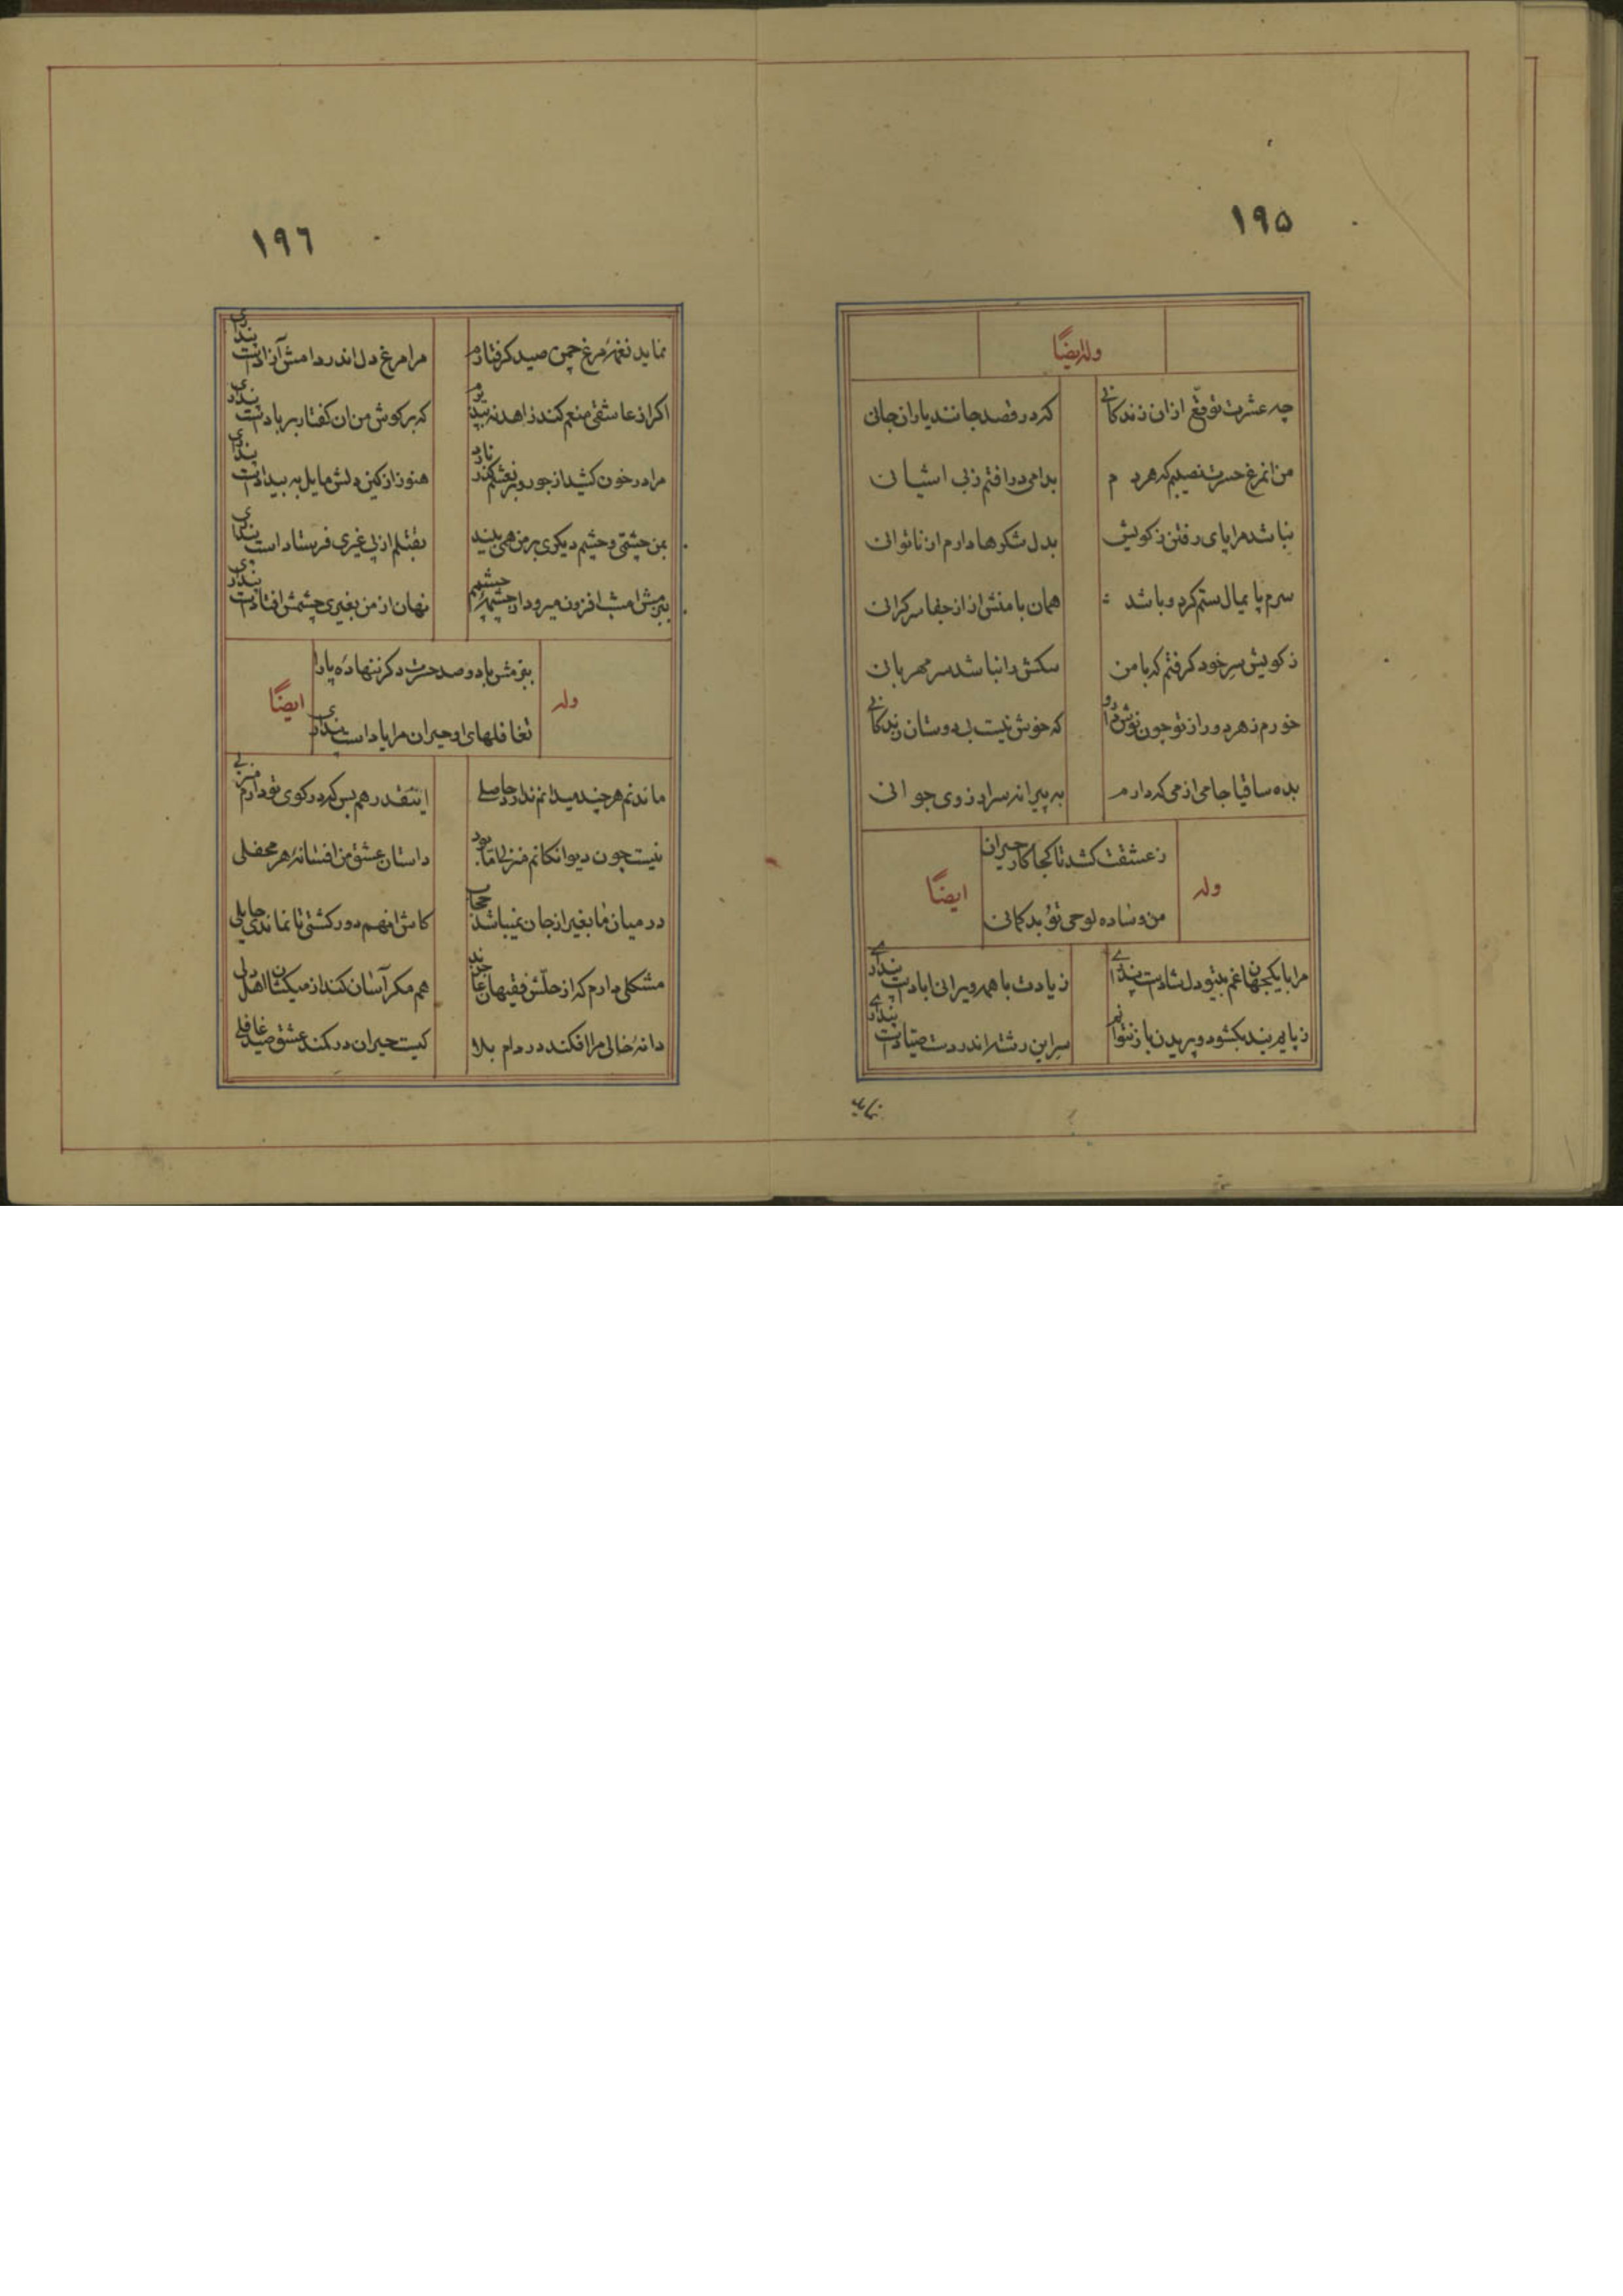 ۱۹۵
وله ایضًا
چه عشرت توقع ازان زندکانی
که در قصد جانند یاران جانی
من انمرغ حسرت نصیبم که هردم
بدامی درافتم ز بی اشیانی
نباشد مرا پای رفتن ز کویش
بدل شکرها دارم از ناتوانی
سرم پایمال ستم کرد و باشد
همان با منش از جفا سرکرانی
ز کویش سر خود کرفتم که با من
سکش را نباشد سر مهربانی
خورم زهر دور از تو چون نوش دارو
که خوش نیست بی دوستان زندکانی
بده ساقیا جامی از می که دارم
به پیرانه سر ارزوی جوانی
وله
ز عشقت کشد تا کجا کار حیران
من و ساده لوحی تو بدکمانی
ایضًا
مرا با یکجهان غم بیتو دل شادست پنداری
ز یادت با همه ویرانی ابادست پنداری
ز پایم بند بکشود و پریدن باز نتوانم
سر این رشته اندر دست صیادست پنداری
نماید
۱۹٦
نماید نغمهٔ مرغ چمن صید کرفتارم
مرا مرغ دل اندر دامش آزادست پنداری
اکر از عاشقی منعم کند زاهد نه بپذیرم
که بر کوش من ان کفتار بر بادست پنداری
مرا در خون کشید از جور و بر نعشم کند
هنوز از کین دلش مایل به بیدادست پنداری
بمن چشتی و چشم دیکری بر من همی بیند
بقتلم از پی غیری فرستاد است پنداری
ببزمش امشب افزون میرود از چشم چشمم
نهان از من بغیری چشمش افتادست پنداری
وله
ببزمش باد و صد حسرت دکر ننهاده پا را
تغافلهای او حیران مرا یاد است پنداری
ایضًا
ماندنم هر چند میدانم ندارد حاصلی
اینقدر هم بس که در کوی تو دارم منزلی
نیست چون دیوانکانم منزلی اما بود
داستان عشق من افسانهٔ هر محفلی
در میان ما بغیر از جان نمیباشد حجاب
کاش انهم دور کشتی تا نماندی حایلی
مشکلی دارم که از حلّش فقیهان عاجزند
هم مکر آسان کند از میکشان اهل دلی
دانهٔ خالی مرا افکند در دام بلا
کیست حیران در کمند عشق صید غافلی